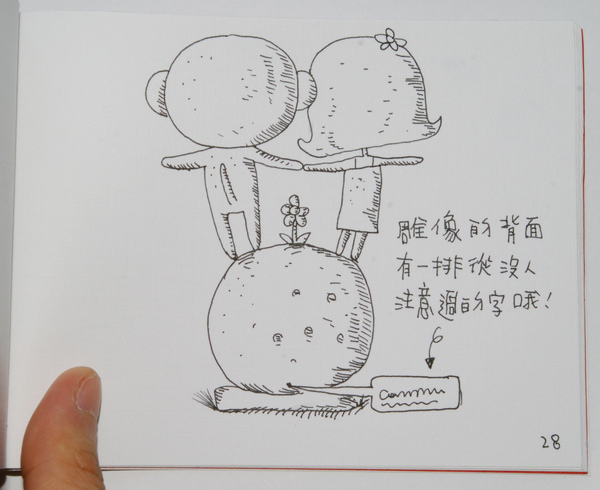 雕像的背面
有一排從沒人
注意過的字哦!
28